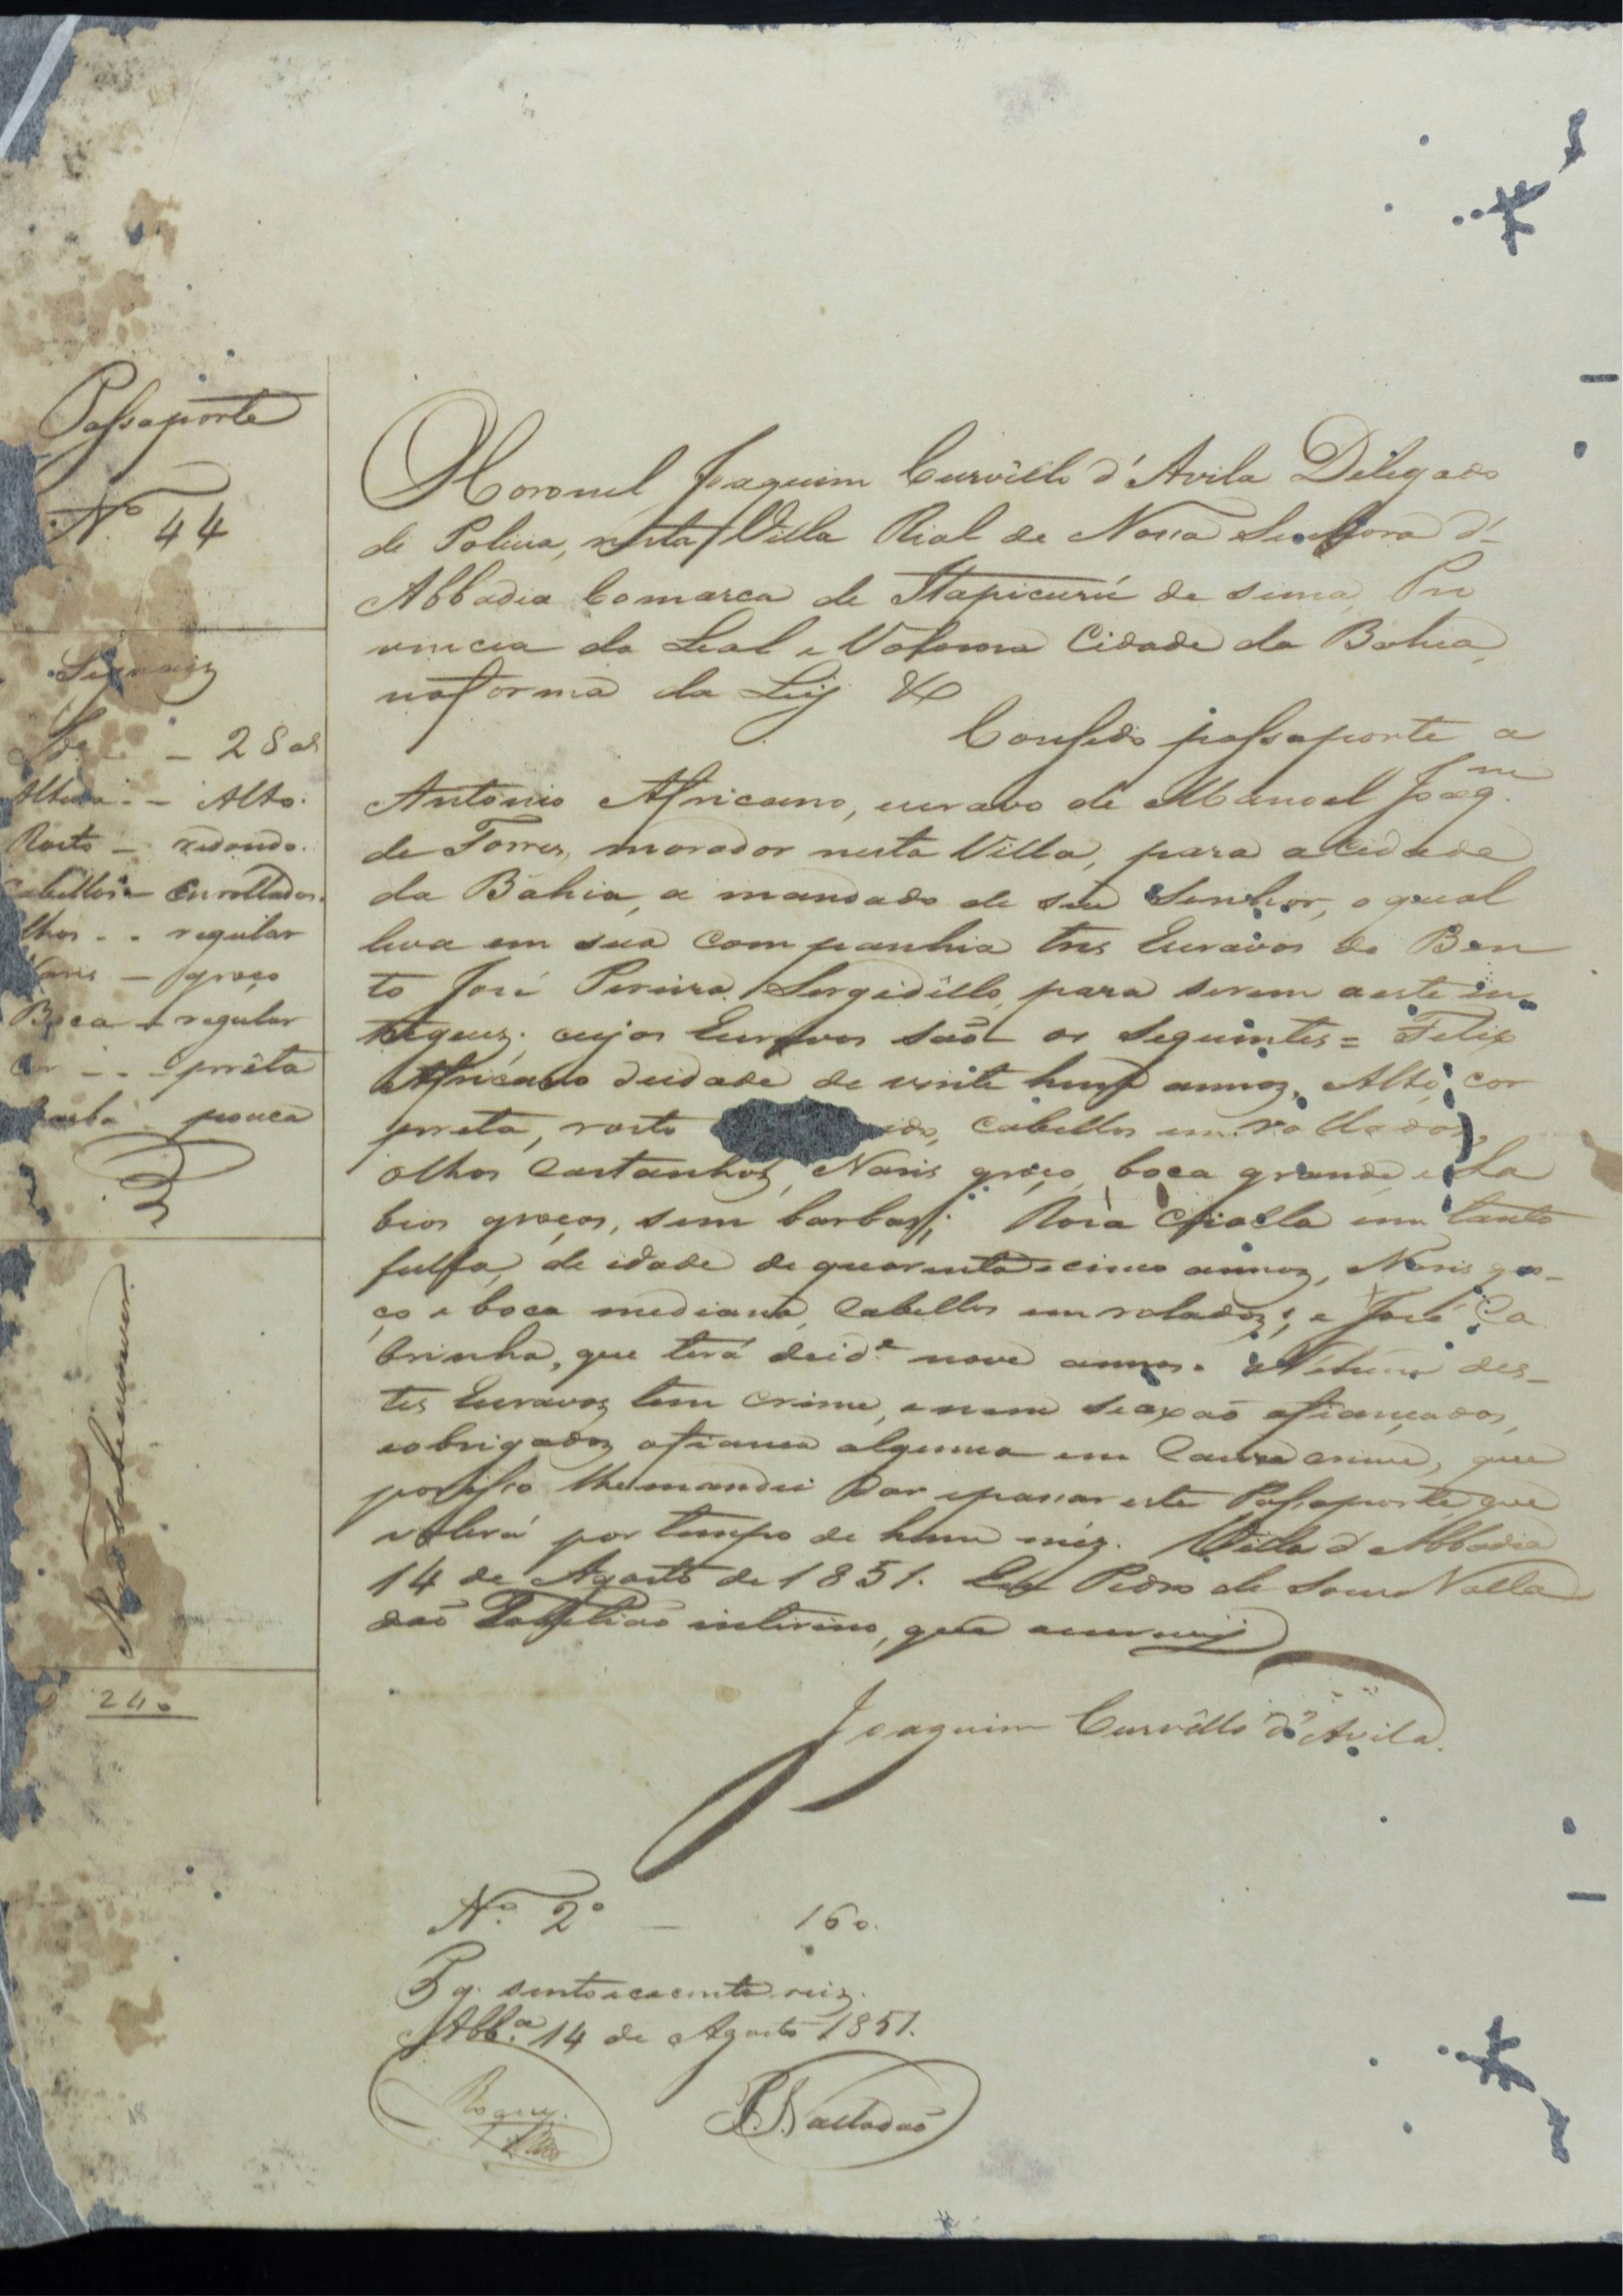 Passaporte
Nº 44
Signaiz
28 as
Altura - Alto.
Rosto - redondo.
Cabellos - Enrollados.
lhos - regular
Naris - groço
Boca - regular
Cor - prêta
Barba pouca
Não sabe escrever
240
O Coronel Joaquim Curvêllo d'Avila Delegado
de Policia, nesta Villa Rial de Nossa Senhora d'
Abbadia Comarca de Itapicurú de sima, Pro
vincia da Leal e Valorosa Cidade da Bahia,
na forma da Ley &
Consedo passaporte a
Antonio Africano, escravo de Manoel Joaqm.
de Torres, morador nesta Villa, para a Cidade
da Bahia, a mandado de seu Senhor, o qual
leva em sua companhia tres Escravos de Ben
to José Pereira Sergidêllo, para serem a este in
tregeus; cujos Escravos são os seguintes = Felix
Africano deidade de vinte hum annoz, Alto, cor
preta, rosto ido, cabellos emrollados,
olhos Castanhoz, Naris groço, boca grande e La
bios groços, sem barbas; Rosa Crioella um tanto
fulfa, de idade de quarenta e cinco annoz, Naris gro-
ço e boca mediana, Cabellos emroladoz; e José Ca
brinha, que terá deide. nove annos. Nehum des-
tes Escravoz tem crime, e nem se axão afiançados,
e obrigadoz a fiança alguma em Cauza crime, que
por isso lhe mandei dar e passar este Passaporte, que
valerá por tempo de hum mêz. Villa d'Abbadia
14 de Agosto de 1851. Eu Pedro de Souza Valla
dão Tabelião interino, que escrevij
Joaquim Curvêllo d'Avila.
Nº 2º - 160.
Pg. sento e cecenta reiz.
Abba. 14 de Agosto 1851.
Roque
P. S. Valladaõ